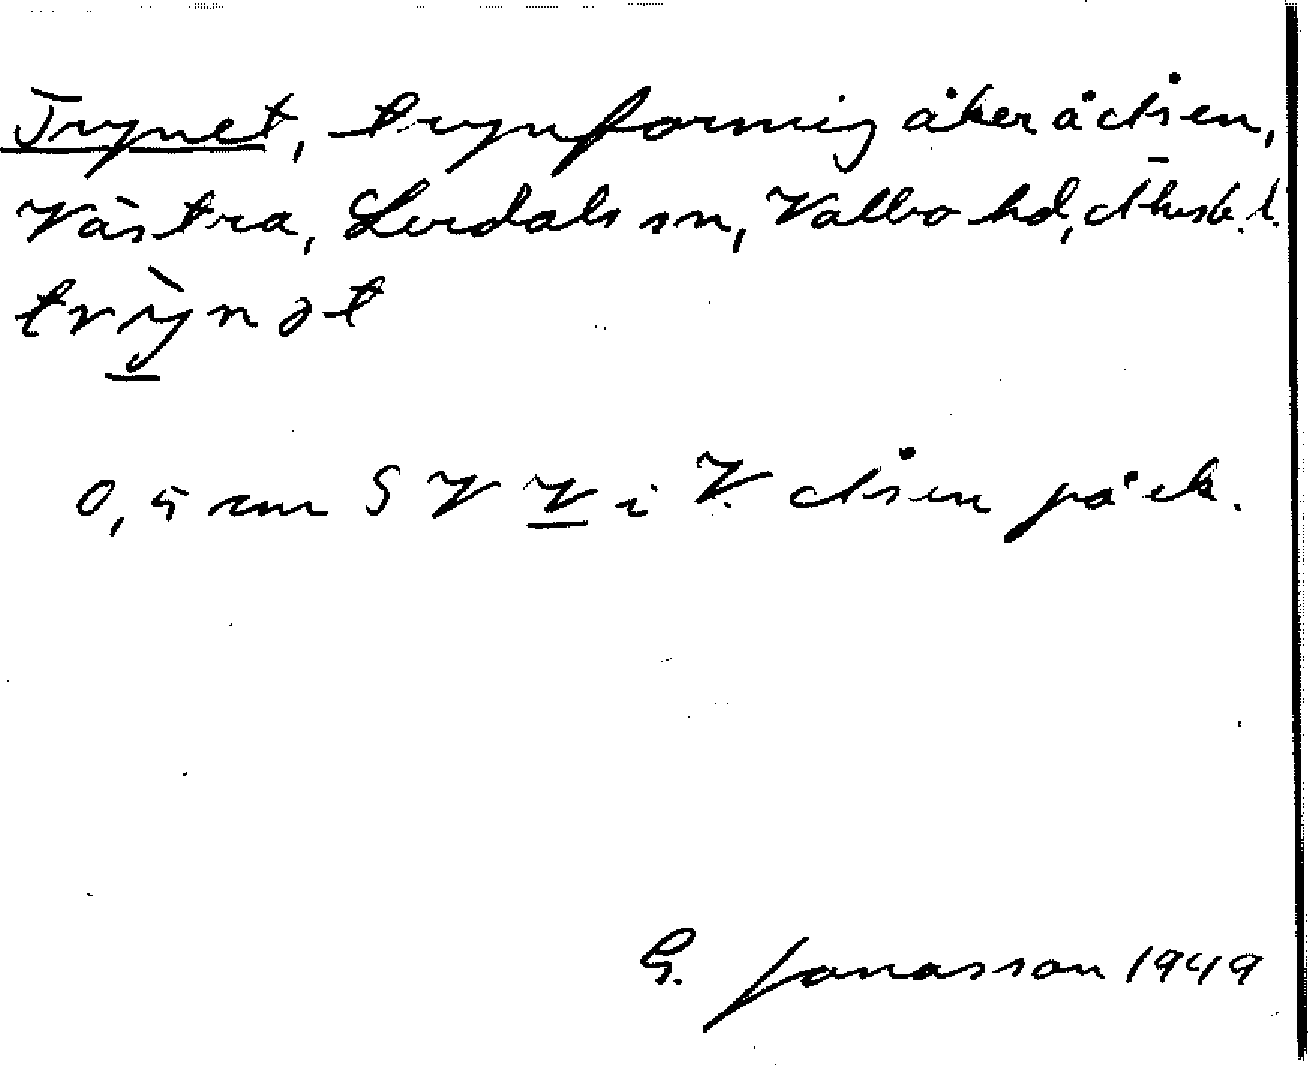 Trynet, trynformig åker å Åsen,
Västra, Lerdals sn, Valbo hd, Älvsb. l.
trỳnət
0,5 cm S V V i V. Åsen på ek.
G. Jonasson 1949